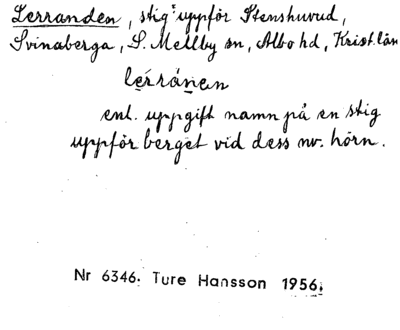 Lerranden, stig uppför Stenshuvud,
Svinaberga, S. Mellby sn, Albo hd, Krist.län
lerránen
enl. uppgift namn på en stig
uppför berget vid dess nv. hörn.
Nr 6346. Ture Hansson 1956.